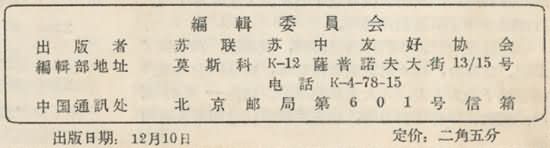 編輯委員会
出版者 苏联苏中友好协会
編輯部地址 莫斯科 K-12 薩普諾夫大街 13/15 号
电話 K-4-78-15
中国通訊处 北京邮局第601号信箱
出版日期: 12月10日 定价: 二角五分